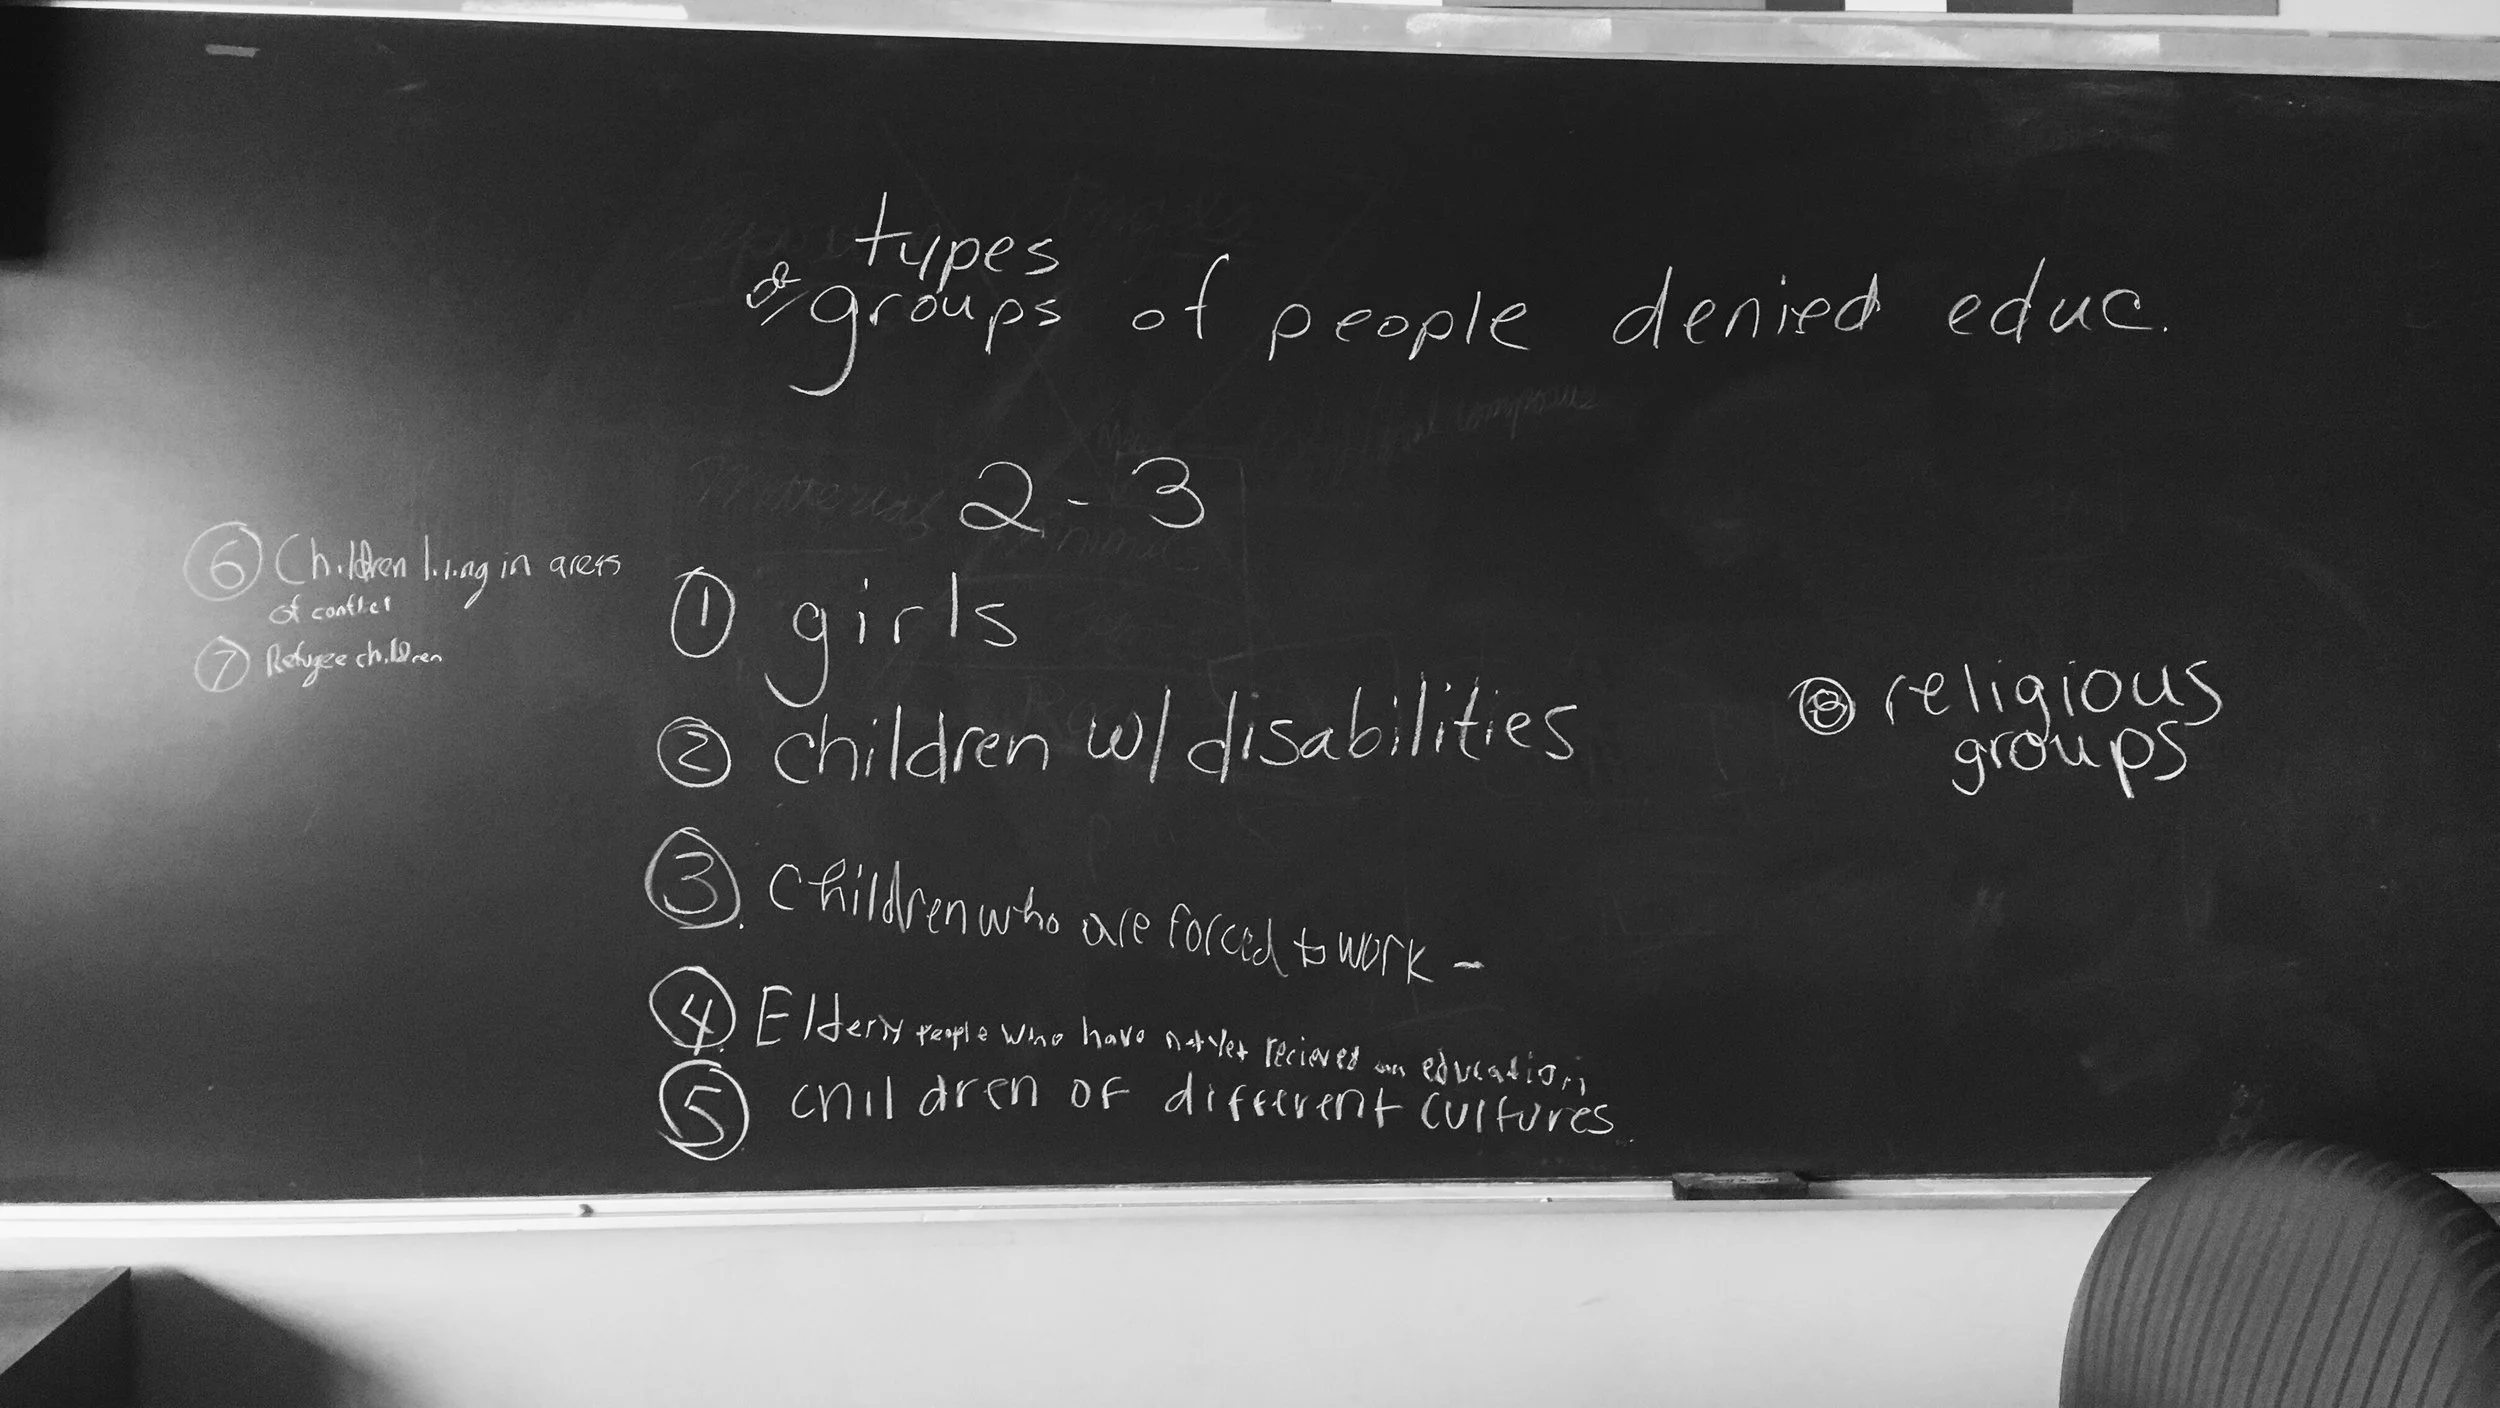 types
& groups of people denied educ.
2-3
① girls
② children w/ disabilities
③. Children who are forced to work -
④. Elderly people who have not yet recieved an education;
⑤ children of different cultures.
⑥ Children living in areas
of conflict
⑦ Refugee children
⑧ religious
groups